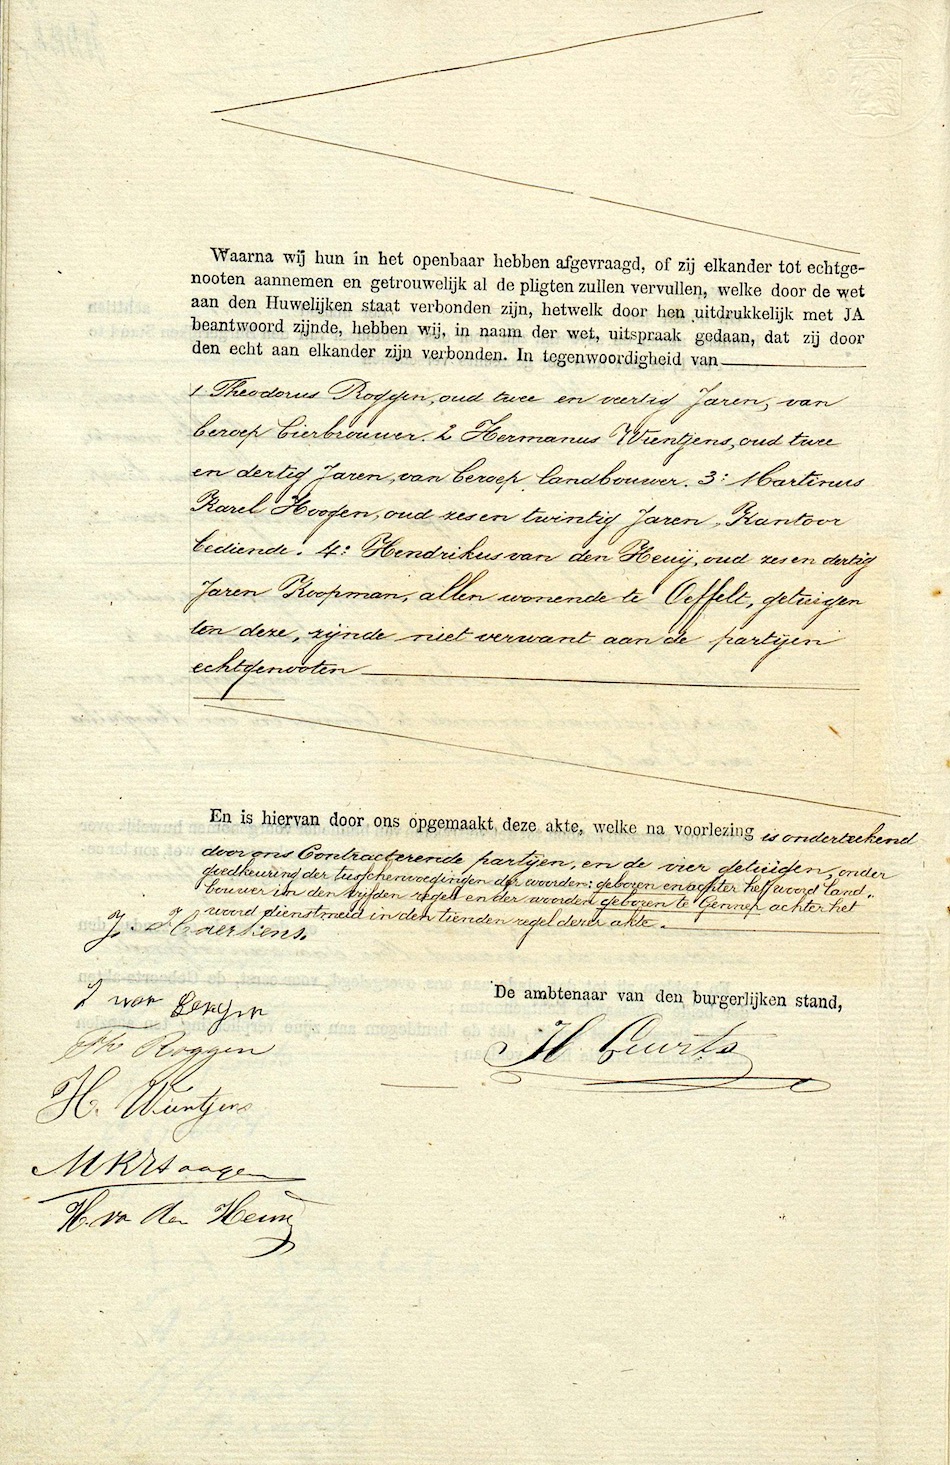 Waarna wij hun in het openbaar hebben afgevraagd, of zij elkander tot echtge-
nooten aannemen en getrouwelijk al de pligten zullen vervullen, welke door de wet
aan den Huwelijken staat verbonden zijn, hetwelk door hen uitdrukkelijk met JA
beantwoord zijnde, hebben wij, in naam der wet, uitspraak gedaan, dat zij door
den echt aan elkander zijn verbonden. In tegenwoordigheid van
1 Theodorus Roggen, oud twee en veertig Jaren, van
beroep bierbrouwer. 2 Hermanus Wientjens, oud twee
en dertig Jaren, van beroep landbouwer. 3: Martinus
Karel Hoogen, oud zes en twintig Jaren, Kantoor
bediende. 4: Hendrikus van den Heuij, oud zes en dertig
Jaren Koopman, allen wonende te Oeffelt, getuigen
ten deze, zijnde niet verwant aan de partijen
echtgenooten
En is hiervan door ons opgemaakt deze akte, welke na voorlezing is onderteekend
door ons Contracterende partijen, en de vier getuigen, onder
goedkeuring der tusschenvoegingen der woorden: geboren en achter het woord land„
bouwer in den vijfden regel en der woorden geboren te Gennep achter het
woord dienstmeid in den tienden regel dezer akte.
De ambtenaar van den burgerlijken stand,
H Geurts
J van
Th Roggen
H. Wientjens
MKHoogen
H. va den Heuij